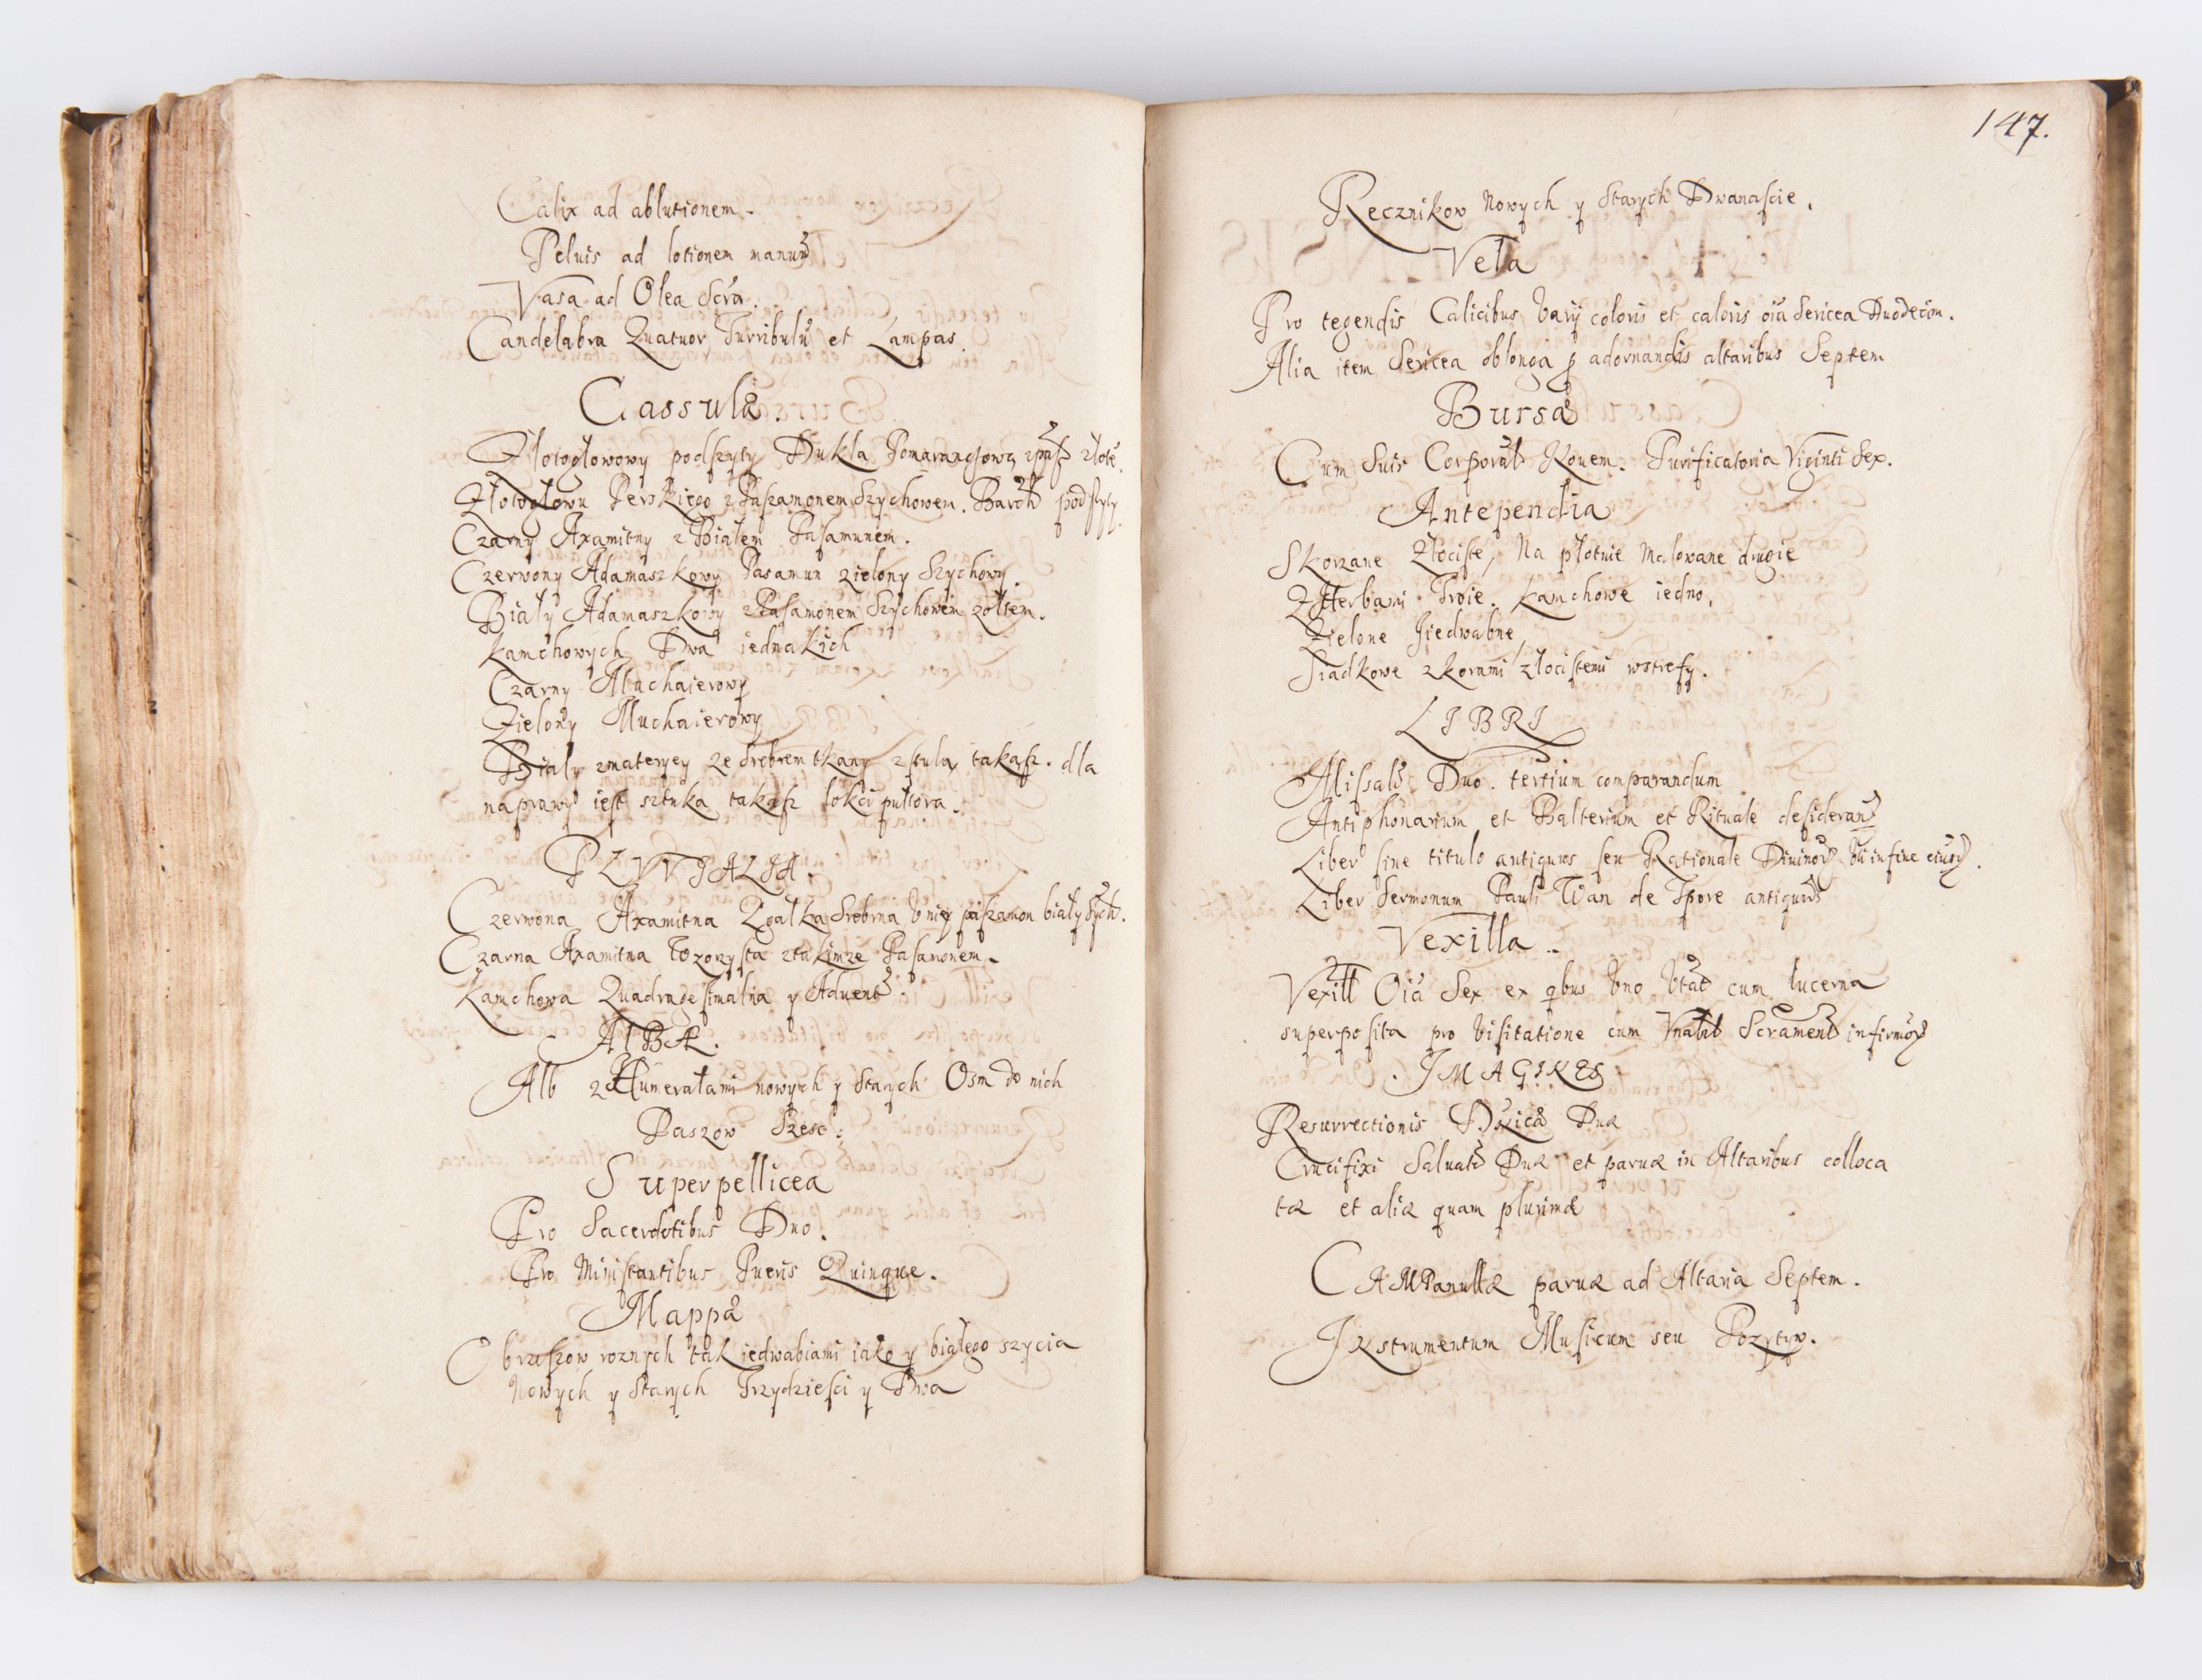 Calix ad ablutionem.
Peluis ad lotionem manuũ
Vasa ad Olea Scra.
Candelabra Quatuor Turribulũ et Lampas.
Cassulæ.
Złotogłowowy podszyty Dukla Pomaranczową złoté.
Złotogłowu Perskiego z Paszamonem Szychowem. podszyty.
Czarny Axamitny z Białem Pasamunem.
Czerwony Adamaszkowy Pasamun zielony Szychowy.
Biały Adamaszkowy z Pasamonem Szychowem zołtem.
Kamchowych Dwa iednakich
Czarny Muchaierowy
Zielony Muchaierowy
Biały zmateryey ze Srebrem tkany zstulą takąsz. dla
naprawy iest sztuka takasz łokci pułtora.
PLVVIALIA.
Czerwona Axamitna Zgałką Srebrną Vniey paszamon biały Szych.
Czarna Axamitna Wzorzysta ztakimze Pasamonem.
Kamchowa Quadragesimalna y Aduent.
AlBÆ.
Alb z Humerałami nowych y Starych Osm do nich
Paszow Szesc.
Superpellicea
Pro Sacerdotibus Duo.
Pro Ministrantibus Pueris Quinque.
Mappæ
Obruszow roznych tak iedwabiami iako y białego szycia
Nowych y Starych Trzydziesci y Dwa
147.
Recznikow Nowych y Starych Dwanascie.
Vela
Pro tegendis Calicibus Varij coloris et caloris oĩa Sericea Duodecim.
Alia item Sericea oblonga p adornandis altaribus Septem
Bursæ
Cum Suis Corporal Nouem. Purificatoria Viginti Sex.
Antependia
Skorzane Złociste, Na płotnie Malowane drugie
Z Herbami Troie. Kamchowe iedno,
Zielone Jiedwabne
Siadkowe zkorami złocistemi wstrefy.
LIBRI
Missalæ Duo. tertium comparandum
Antiphonarium et Psalterium et Rituale desideran
Liber sine titulo antiquus seu Rationale Diuinor in fine eius.
Liber Sermonum Pauli Wan de Tpore antiquus
Vexilla.
Vexill Oĩa Sex ex qbus Vno Vtat cum lucerna
superposita pro Visitatione cum Scrament infirmor
IMAGINES
Resurrectionis Dnicæ Duæ
Crucifixi Saluat Duæ et paruæ in Altaribus colloca
tæ et aliæ quam plurimæ
CAMPanullæ paruæ ad Altaria Septem.
INstrumentum Musicum seu Pozytyw.